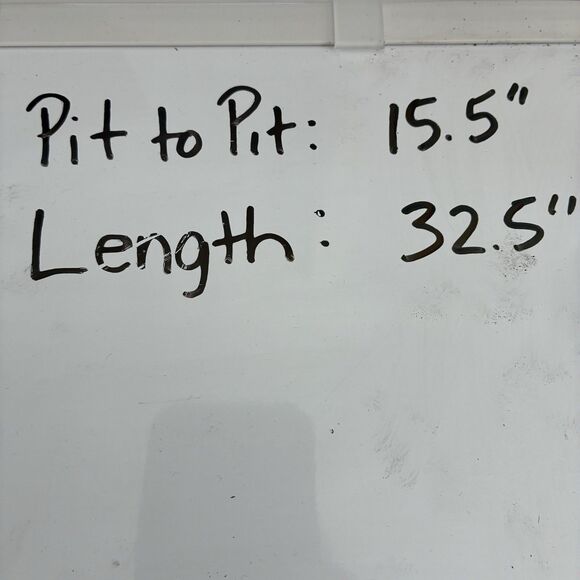 Pit to Pit: 15.5"
Length: 32.5"